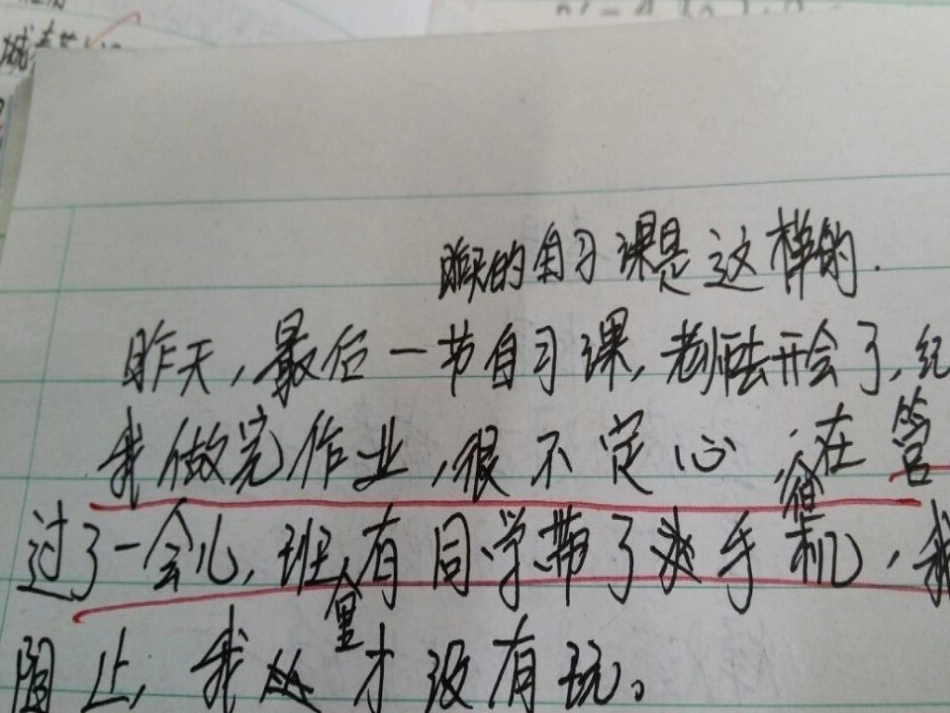 昨天的自习课是这样的.
昨天,最后一节自习课,老师去开会了,纪
我做完作业,很不定心,在管
过了一会儿,班里有同学带了手机,我
阻止,我才没有玩。